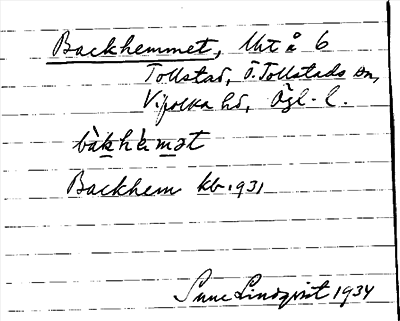 Backhemmet, lht å 6
Tollstad, Ö. Tollstads sn,
Vifolka hd, Ögl. l.
bàkhèmət
Backhem kb. 1931
Sune Lindqvist 1934